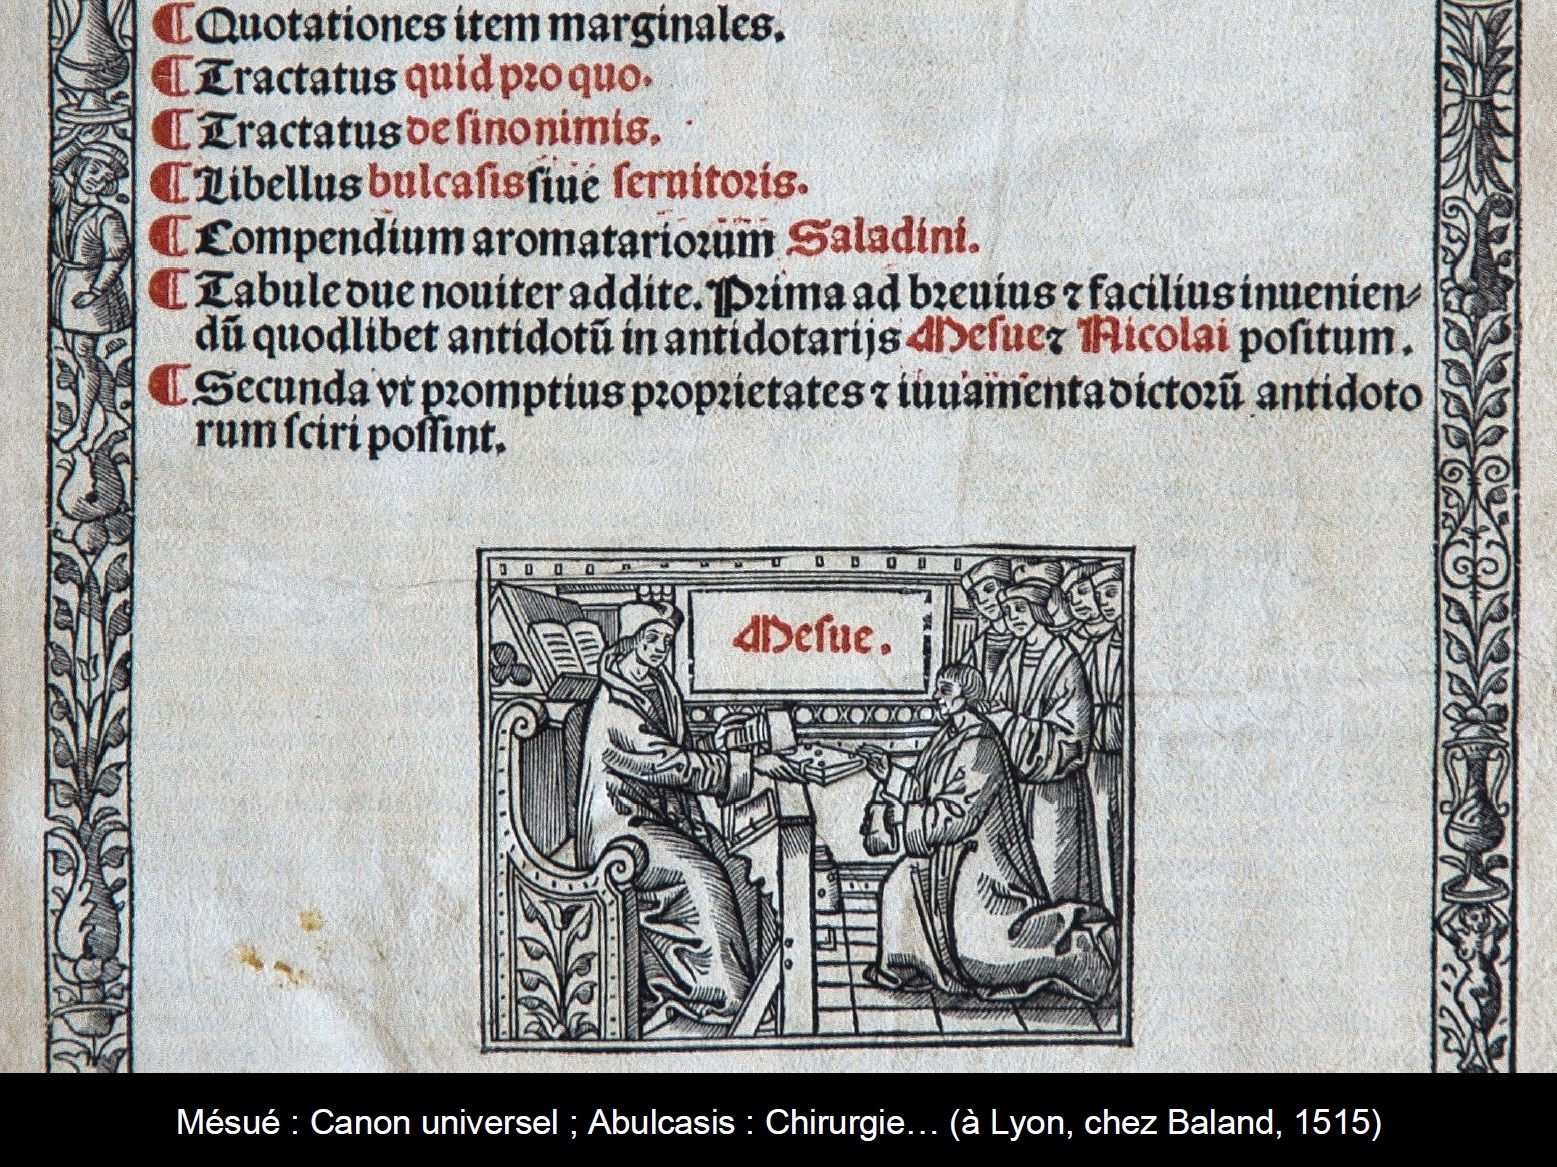 ¶ Quotationes item marginales.
¶ Tractatus quid pro quo.
¶ Tractatus de sinonimis.
¶ Libellus bulcasis siue seruitoris.
¶ Compendium aromatariorum Saladini.
¶ Tabule due nouiter addite. Prima ad breuius ⁊ facilius inuenien⸗
dū quodlibet antidotū in antidotarijs Mesue ⁊ Nicolai positum.
¶ Secunda vt promptius proprietates ⁊ iuuamenta dictorū antidoto
rum sciri possint.
Mesue.
Mésué : Canon universel ; Abulcasis : Chirurgie… (à Lyon, chez Baland, 1515)